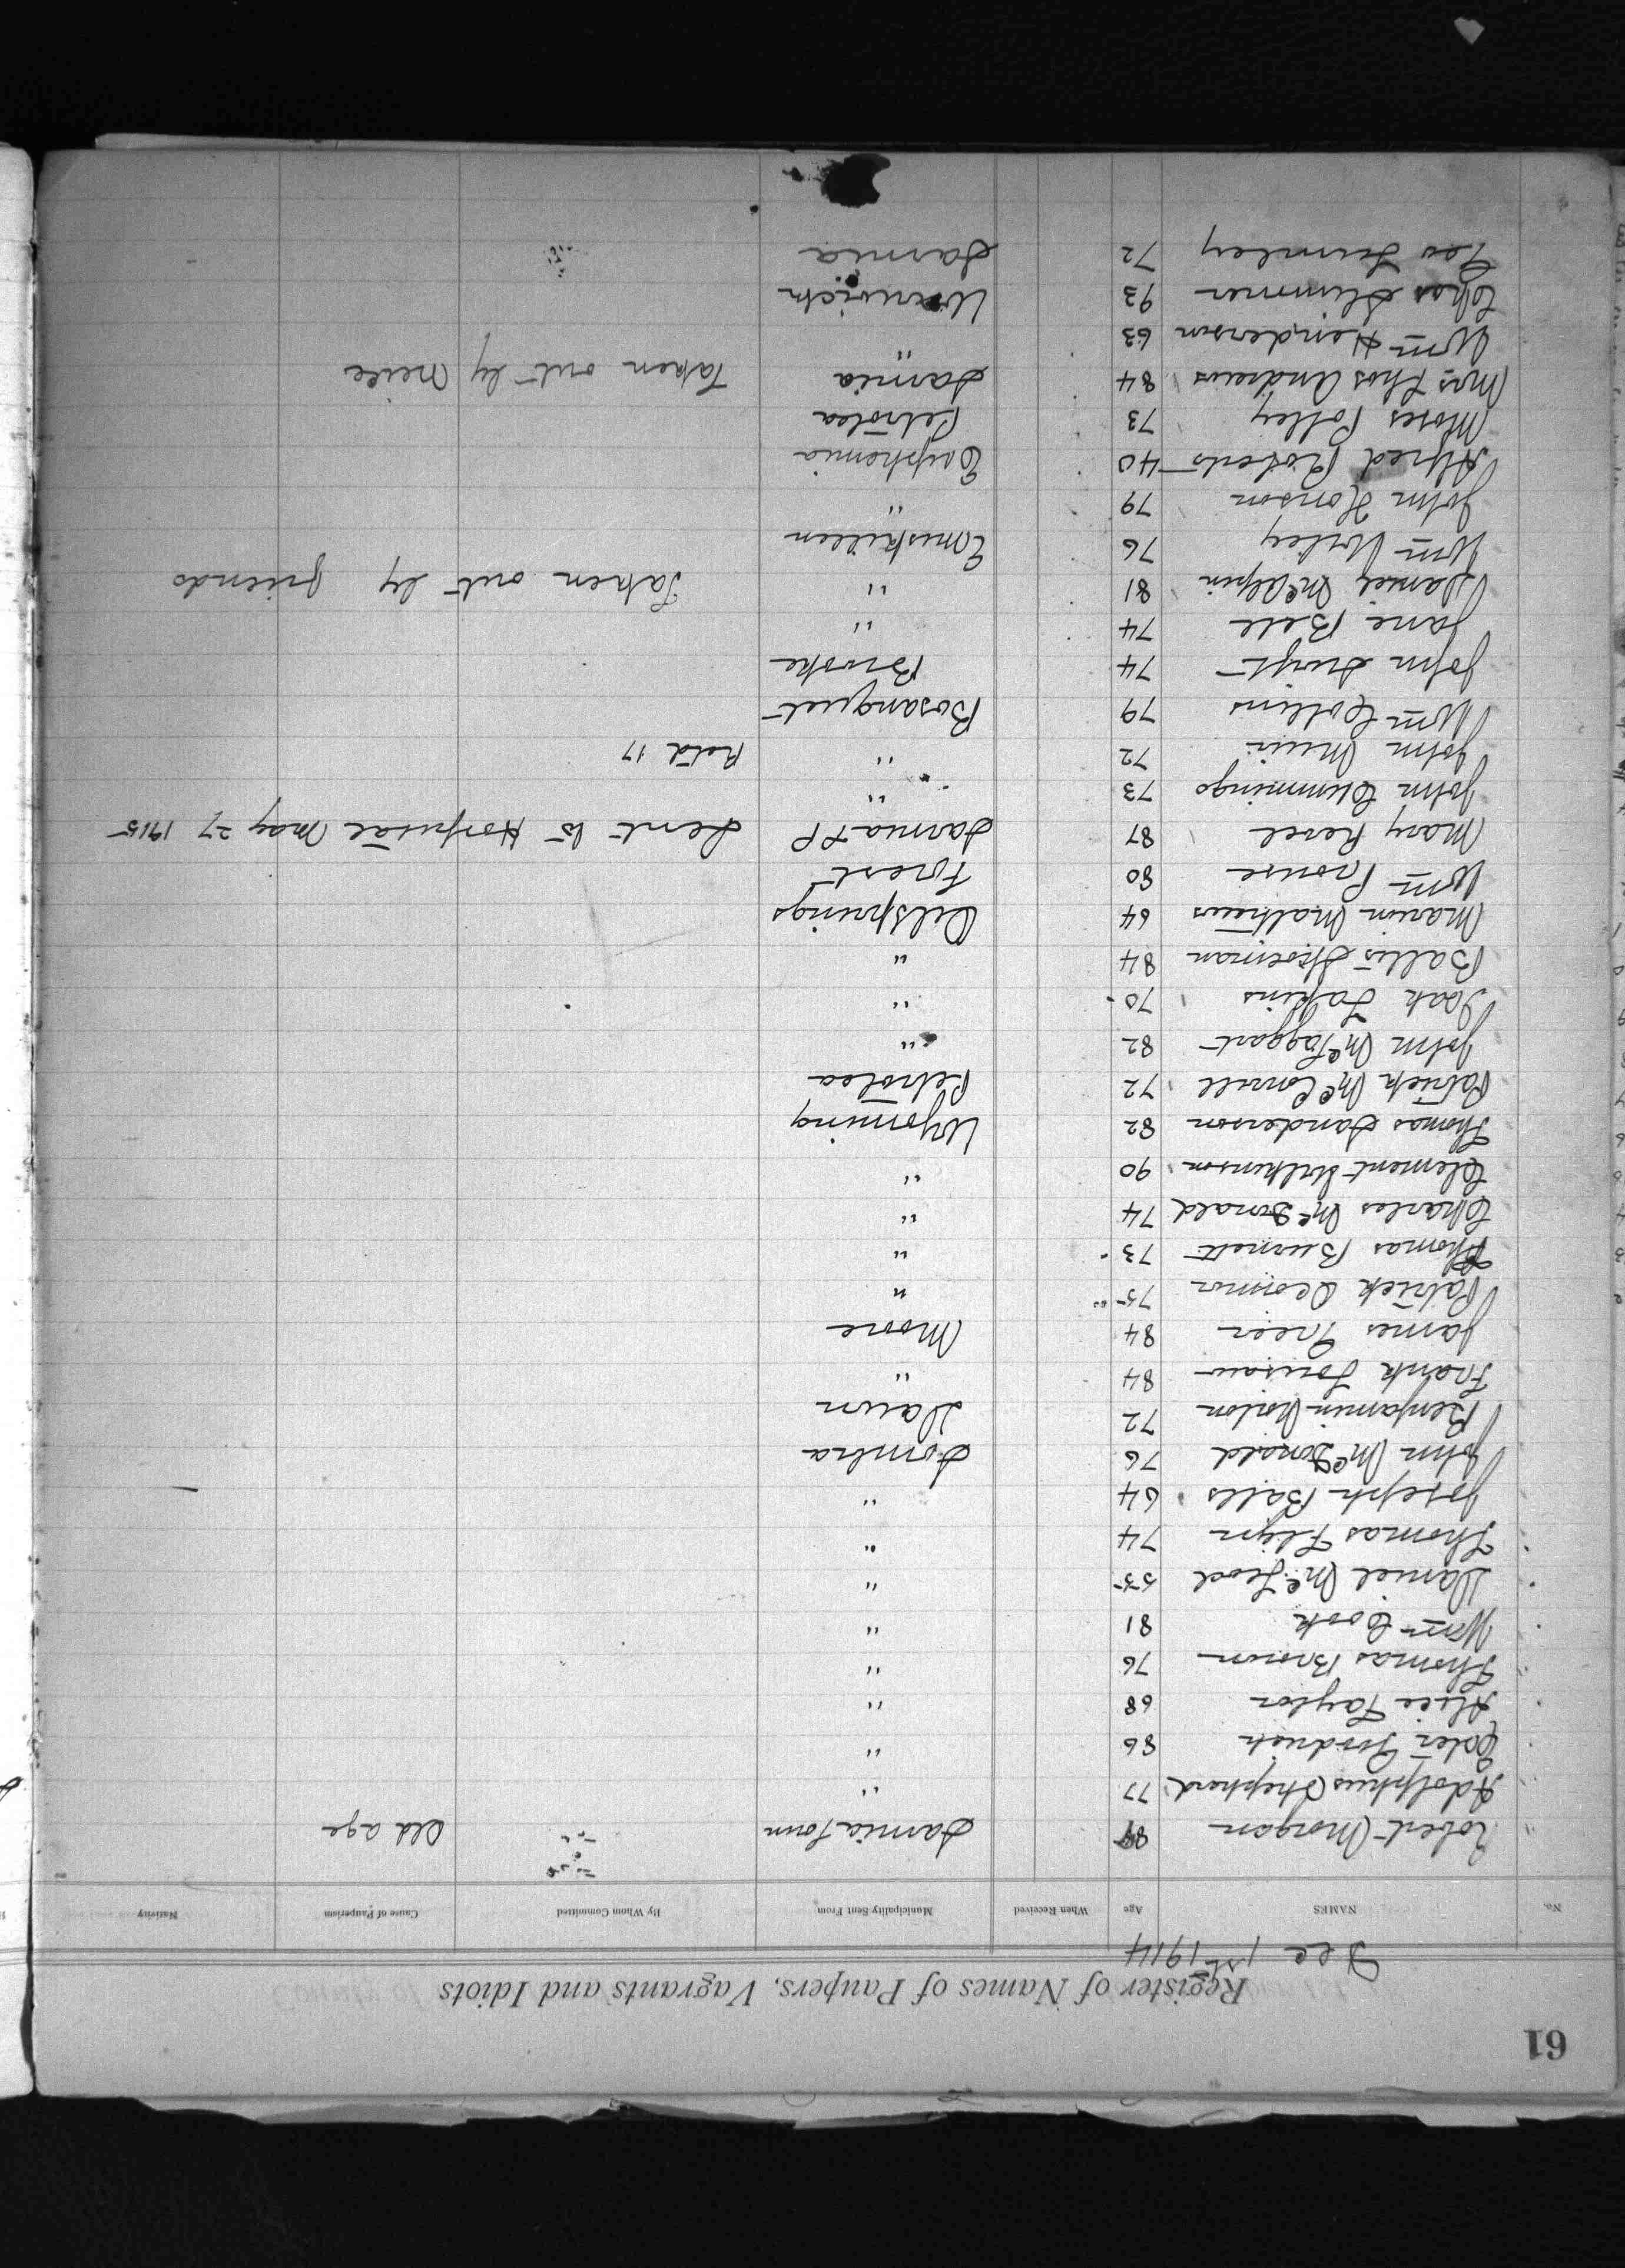 61
Register of Names of Paupers, Vagrants and Idiots
Dec 1st 1914
No. NAMES Age When Received Municipality Sent From By Whom Committed Cause of Pauperism Nativity
Robert Morgan Sarnia Town Old age
Adolphus Shephard 77 "
Peter 86 "
Alice Taylor 68 "
Thomas Brown 76 "
Wm Cook 81 "
Daniel McLeod 55 "
Thomas Flyn 74 "
Joseph Balls 64 "
John McDonald 76 Sombra
Benjamin Norton 72 Dawn
Frank 84 "
James Freer 84 Moore
Patrick Oconnor 75 "
Thomas Burnett 73 "
Charles McDonald 74 "
Clement Wilkinson 90 "
Thomas Sanderson 82 Wyoming
Patrick McConnell 72 Petrolea
John McTaggart 82 "
Isak Jakins 70 "
84 "
Marion Mathews 64 Oilsprings
Wm Prouse 80 Forest
Mary Resel 87 Sarnia TP Sent to Hospital May 27 1915
John Cummings 73 "
John Muir 72 " Retd 17
Wm Collins 79 Bosanquet
John Swift 74 Brooke
Jane Bell 74 "
Daniel McAlpin 81 " Taken out by friends
Wm Worley 76 Enniskillen
John Honson 79 "
Alfred Roberts 40 Euphemia
Moses Polley 73 Petrolea
Mrs Thos Andrews 84 Sarnia Taken out by Neice
Wm Henderson 63 "
Chas Slummer 93 Warwick
Geo Lumley 72 Sarnia